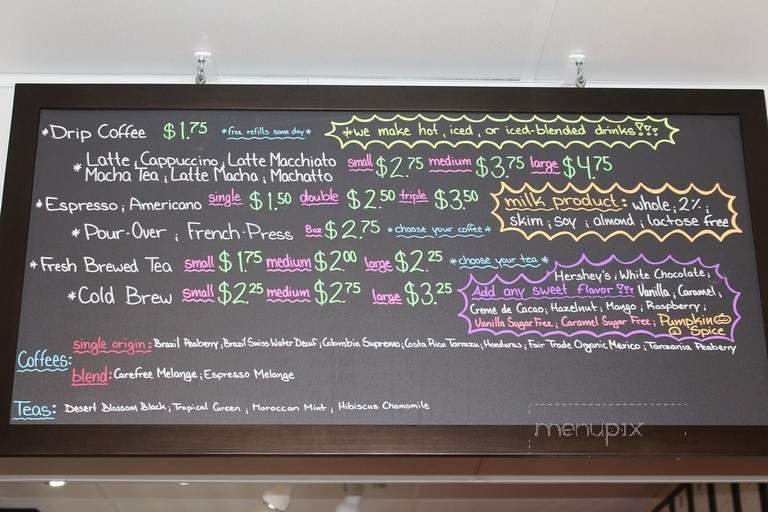 *Drip Coffee $1.75 *free refills same day*
*we make hot, iced, or iced-blended drinks!!!
*Latte, Cappuccino, Latte Macchiato small $2.75 medium $3.75 large $4.75
Mocha Tea, Latte Macha, Machatto
*Espresso, Americano single $1.50 double $2.50 triple $3.50
milk product: whole, 2%,
skim, soy, almond, lactose free
*Pour-Over, French-Press 8oz $2.75 *choose your coffee*
*Fresh Brewed Tea small $1.75 medium $2.00 large $2.25 *choose your tea*
*Cold Brew small $2.25 medium $2.75 large $3.25
Hershey's, White Chocolate,
Add any sweet flavor!!! Vanilla, Caramel,
Creme de Cacao, Hazelnut, Mango, Raspberry,
Vanilla Sugar Free, Caramel Sugar Free, Pumpkin
Spice
Coffees:
single origin: Brazil Peaberry, Brazil Swiss Water Decaf, Colombia Supremo, Costa Rica Tarrazu, Honduras, Fair Trade Organic Mexico, Tanzania Peaberry
blend: Carefree Melange, Espresso Melange
Teas: Desert Blossom Black, Tropical Green, Moroccan Mint, Hibiscus Chamomile
menupix